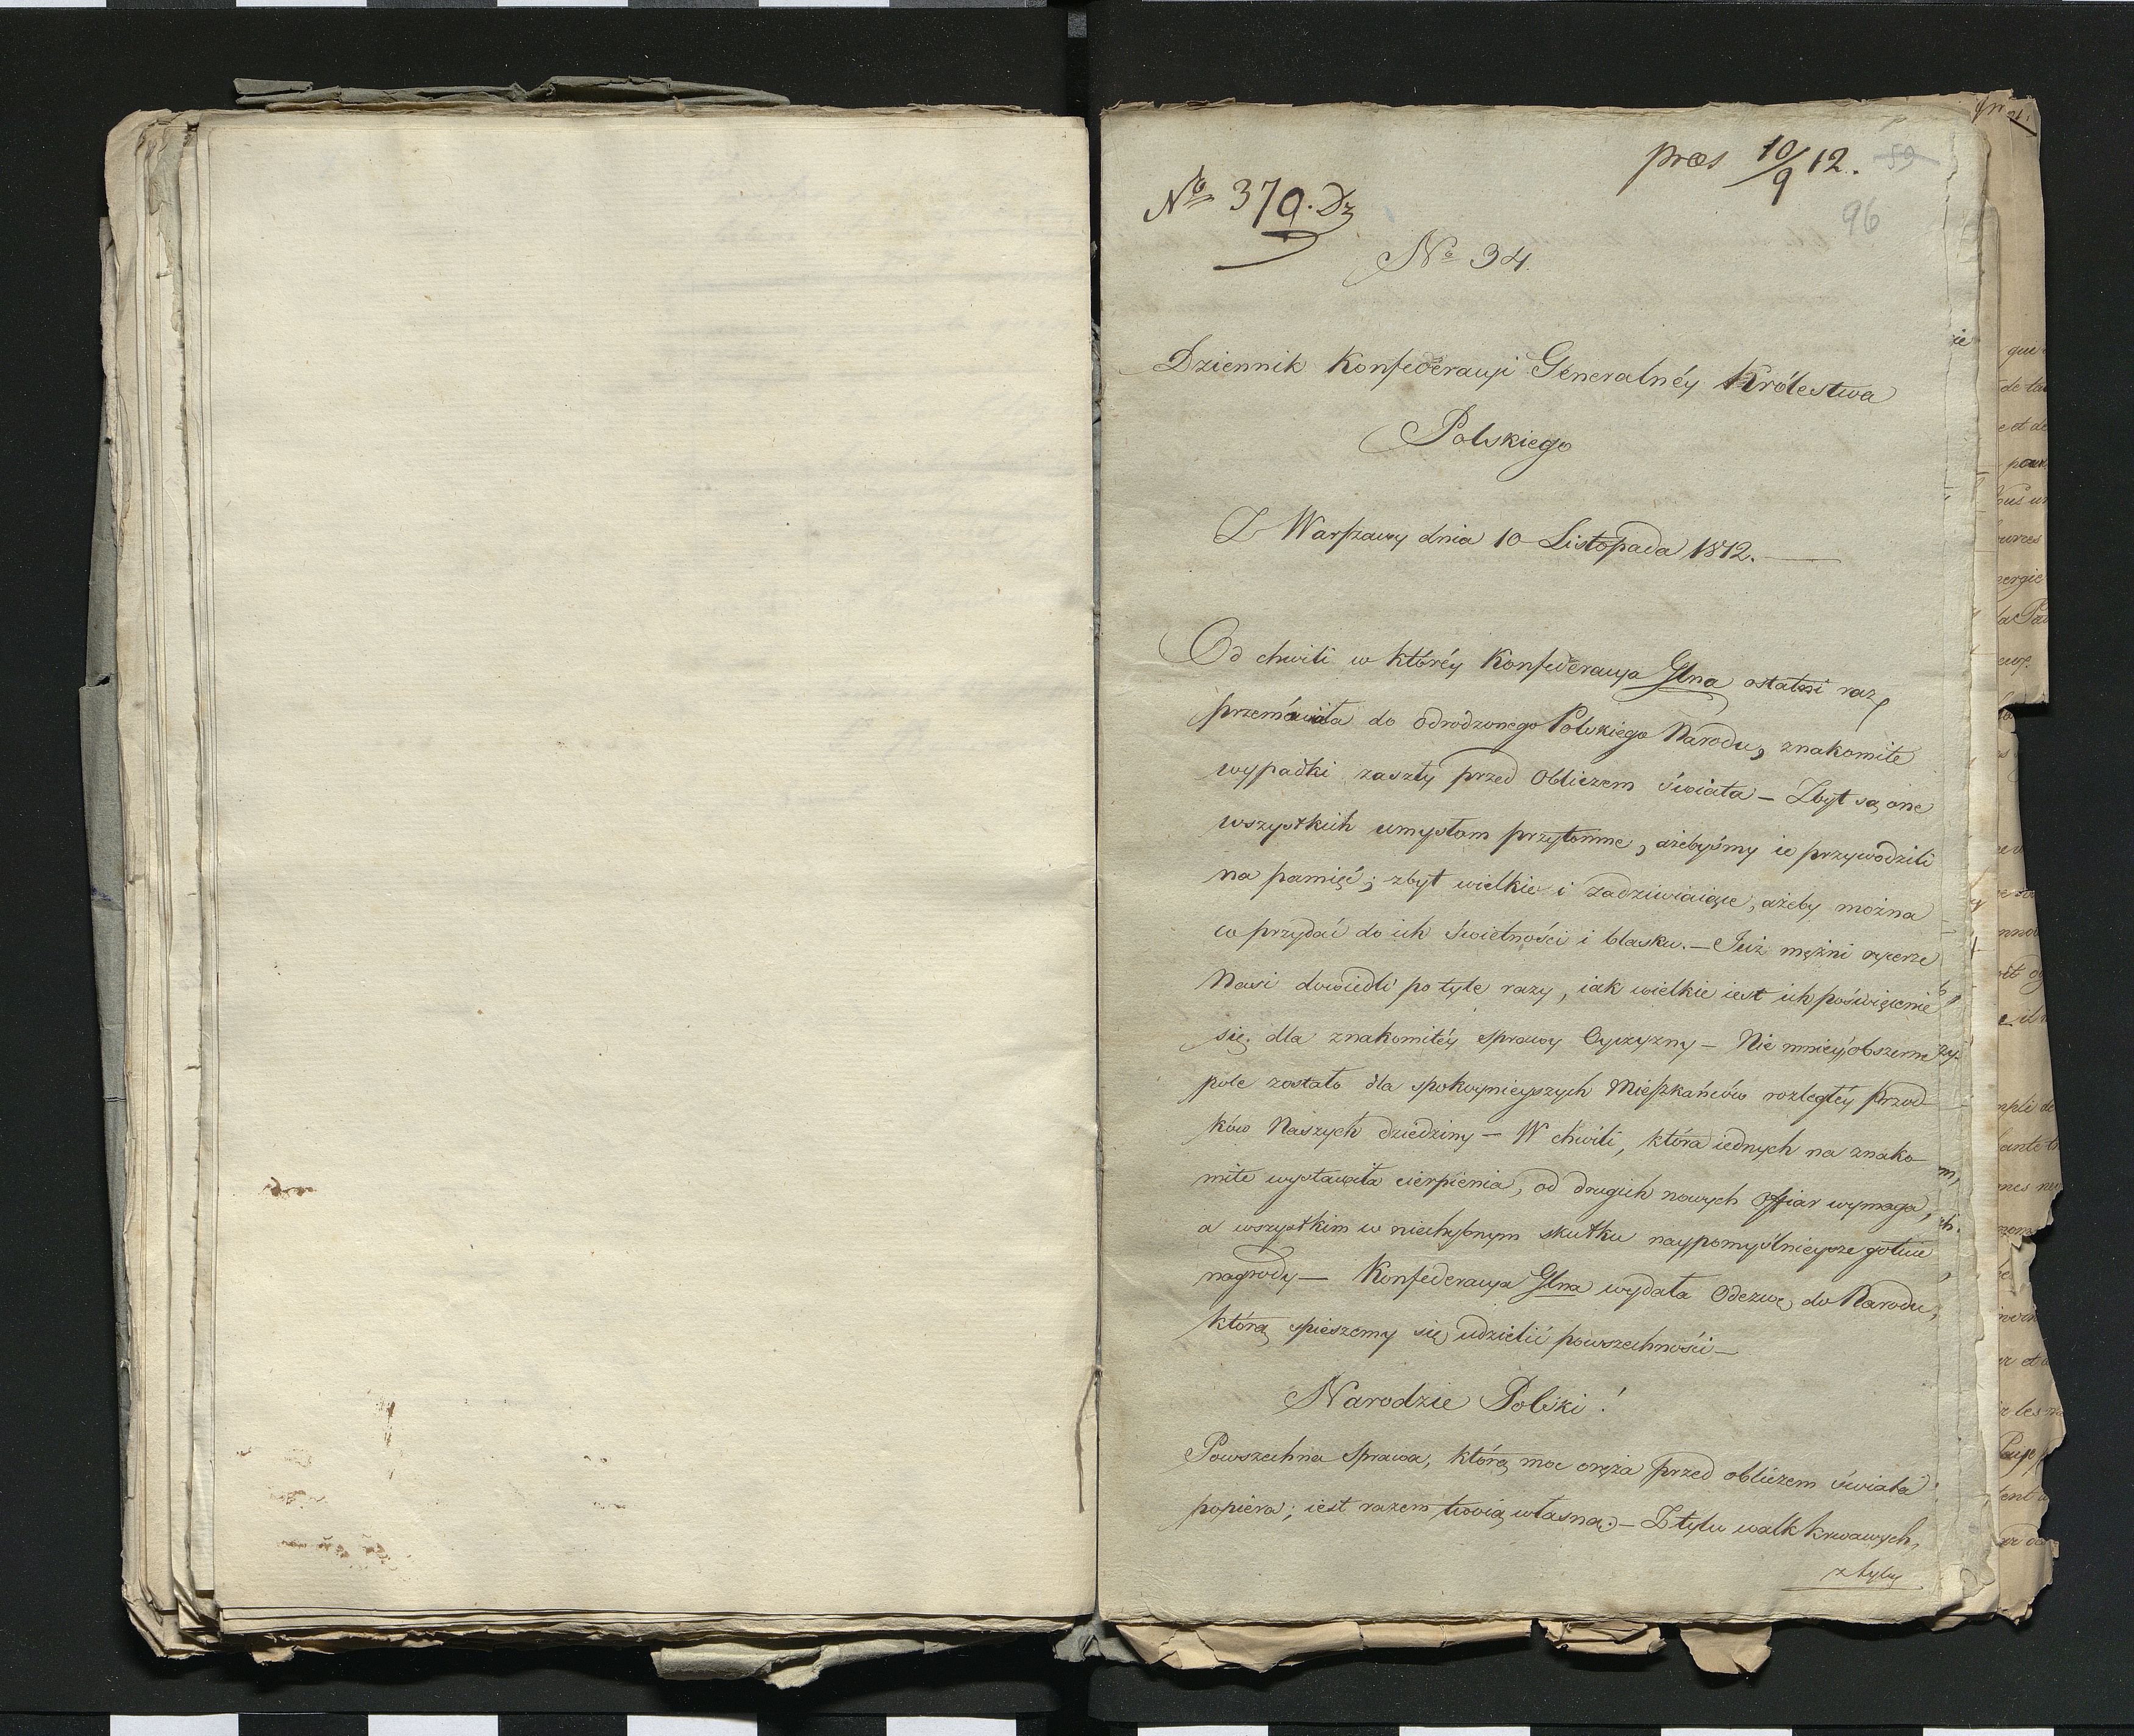 præs 10/9 12. 59
Nº 370. Dz
96
Nº 34.
Dziennik Konfederacyi Generalnéy Królestwa
Polskiego
Z Warszawy dnia 10 Listopada 1812.
Od chwili w któréy Konfederacya Glna ostatni raz
przemówiła do odrodzonego Polskiego Narodu, znakomite
wypadki zaszły przed Obliczem świata – Zbyt są one
wszystkich umysłom przytomne, ażebyśmy ie przywodzili
na pamięć; zbyt wielkie i zadziwiaiące, ażeby można
co przydać do ich świetności i blasku. – Już mężni rycerze
Nasi dowiedli po tyle razy, iak wielkie iest ich poświęcenie
się dla znakomitéy sprawy Oyczyzny – Nie mniéy obszerne
pole zostało dla spokoynieyszych Mieszkańców rozległéy przod
ków Naszych dziedziny – W chwili, która iednych na znako
mite wystawiła cierpienia, od drugich nowych offiar wymaga,
a wszystkim w niechybnym skutku naypomyślnieysze gotuie
nagrody – Konfederacya Glna wydała Odezwę do Narodu,
którą spieszemy się udzielić powszechności –
Narodzie Polski!
Powszechna Sprawa, którą moc oręża przed obliczem świata
popiera; iest razem twoią własną. – Z tylu walk krwawych,
z tylu